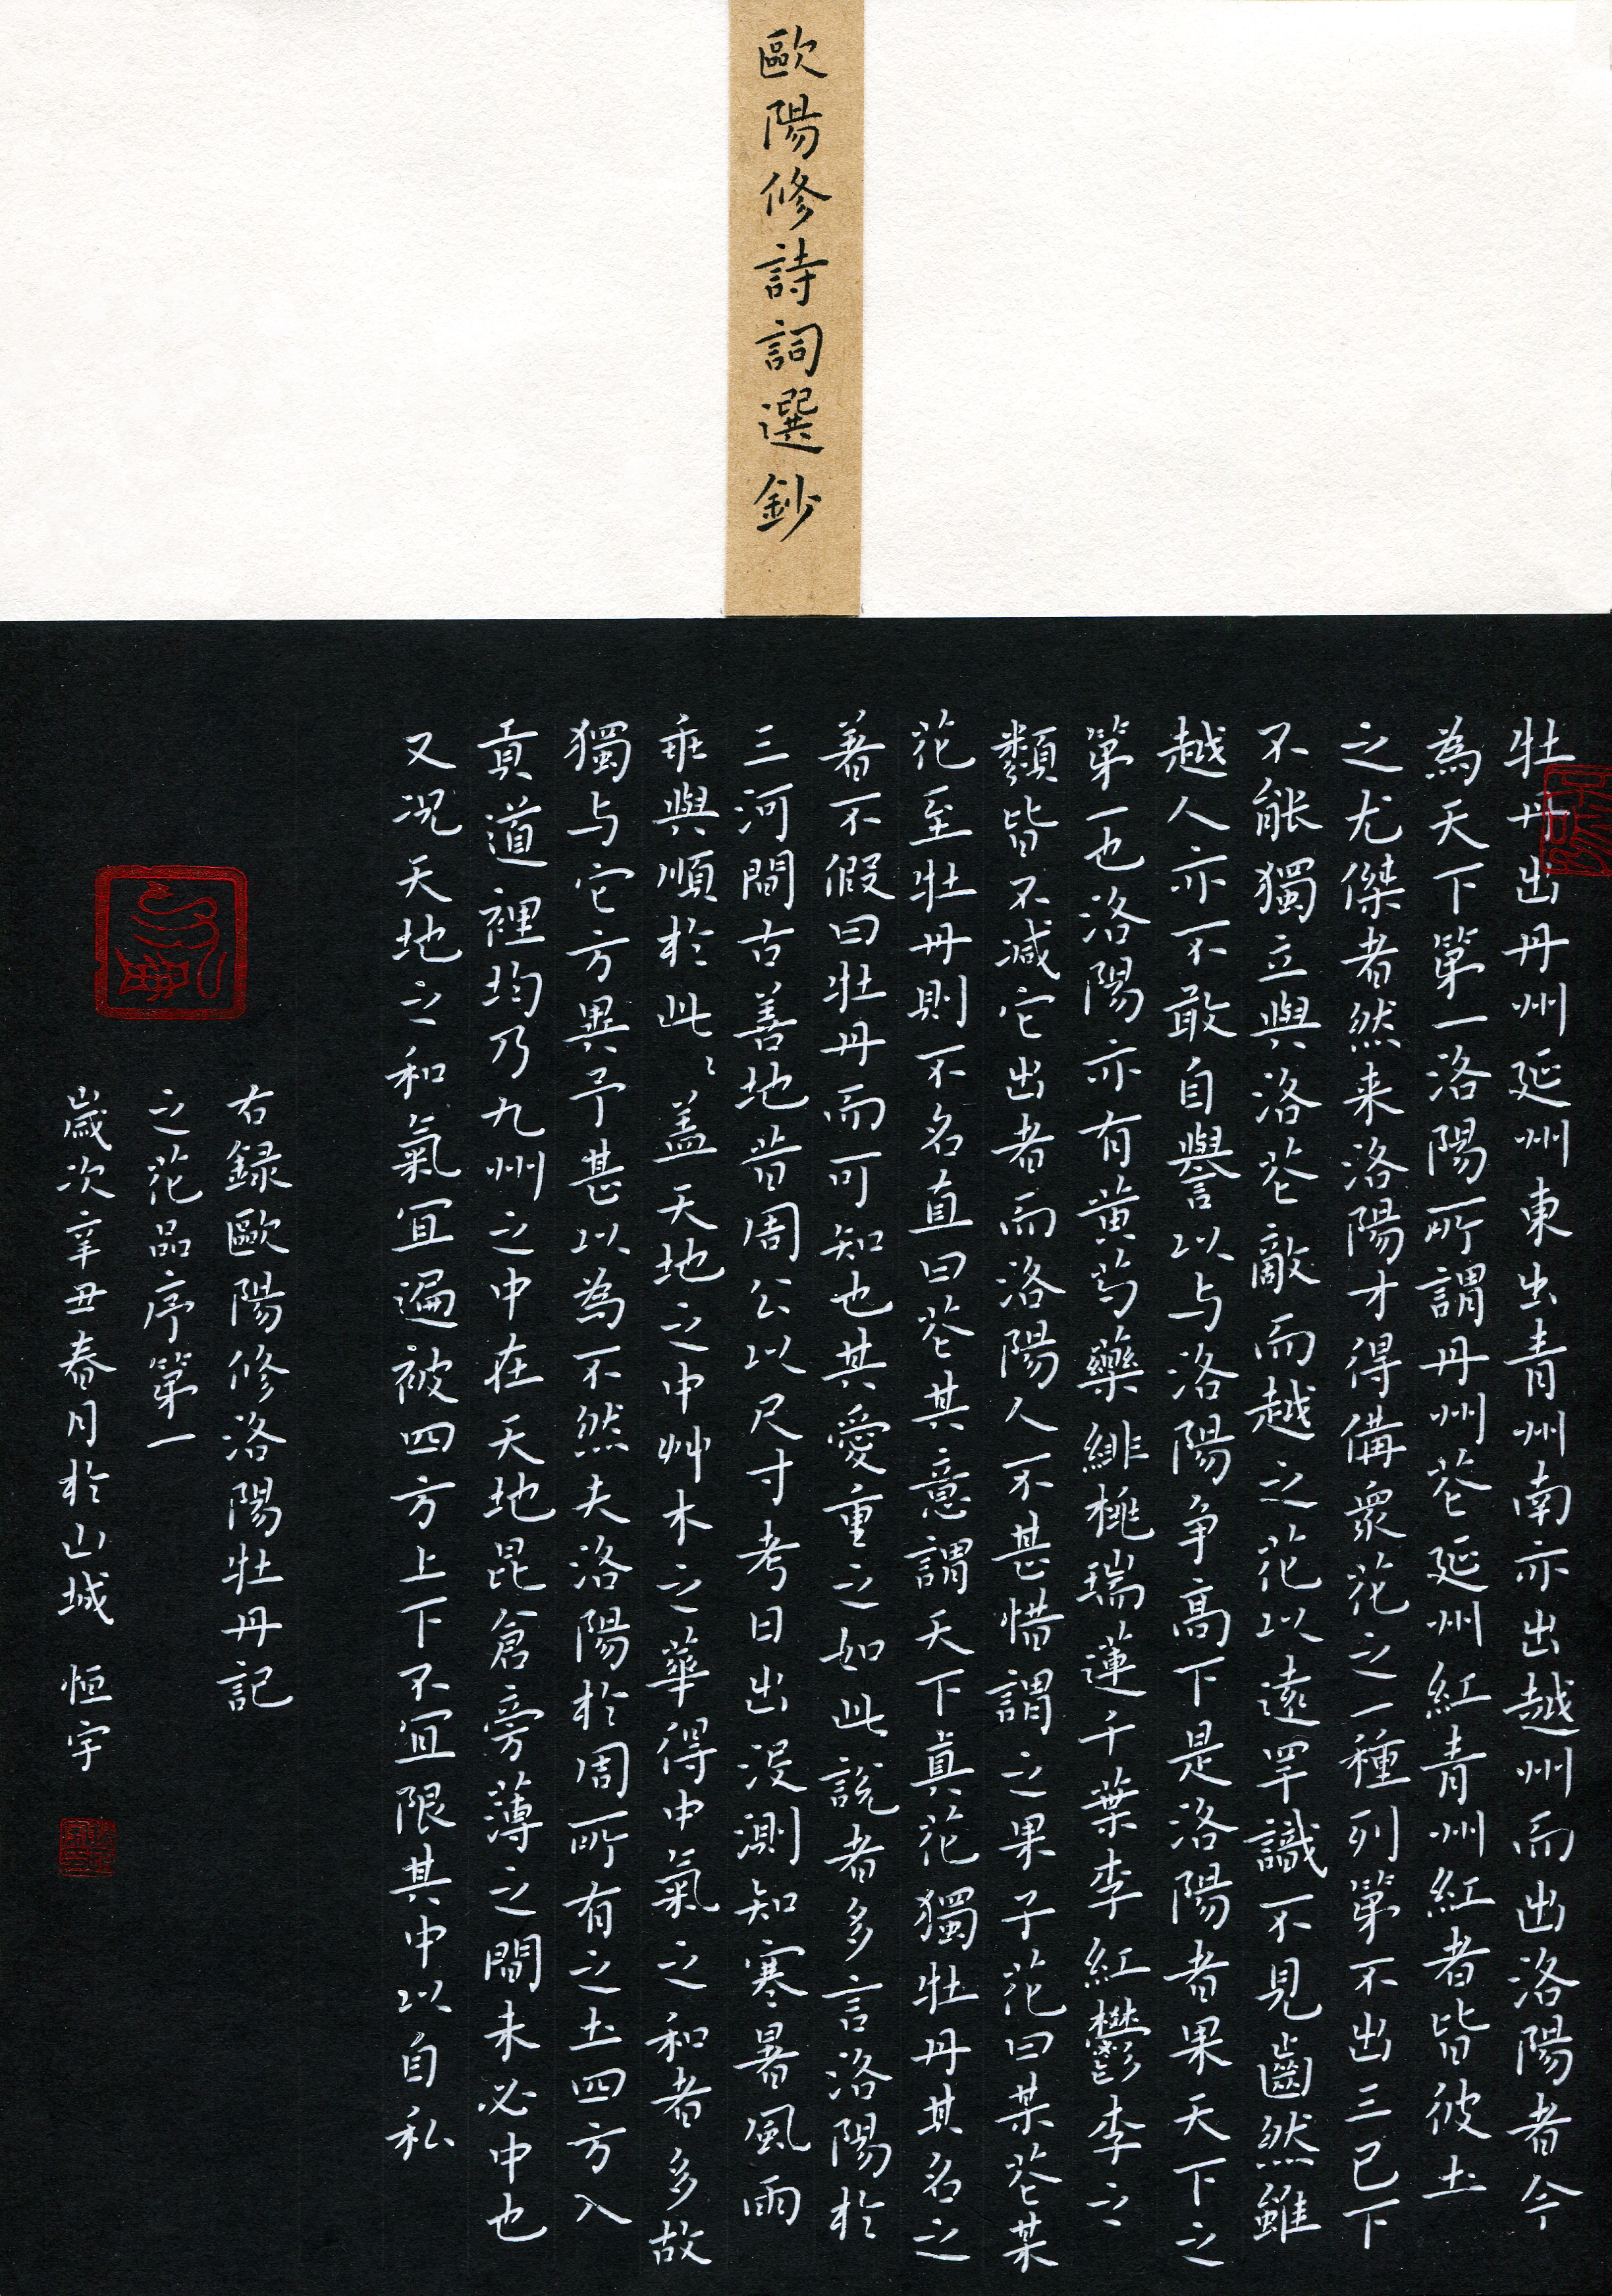 歐陽修詩詞選鈔
牡丹出丹州延州東出青州南亦出越州而出洛陽者今
為天下第一洛陽所謂丹州花延州紅青州紅者皆彼土
之尤傑者然来洛陽才得備眾花之一種列第不出三已下
不能獨立與洛花敵而越之花以遠罕識不見齒然雖
越人亦不敢自譽以与洛陽争高下是洛陽者果天下之
第一也洛陽亦有黄芍藥緋桃瑞蓮千葉李紅鬱李之
類皆不減它出者而洛陽人不甚惜謂之果子花曰某花某
花至牡丹則不名直曰花其意謂天下真花獨牡丹其名之
著不假曰牡丹而可知也其愛重之如此說者多言洛陽於
三河間古善地昔周公以尺寸考日出没測知寒暑風雨
乖與順於此〻蓋天地之中艸木之華得中氣之和者多故
獨与它方異予甚以為不然夫洛陽於周所有之土四方入
貢道裡均乃九州之中在天地昆侖旁薄之間未必中也
又况天地之和氣宜遍被四方上下不宜限其中以自私
右録歐陽修洛陽牡丹記
之花品序第一
歲次辛丑春月於山城 恒宇